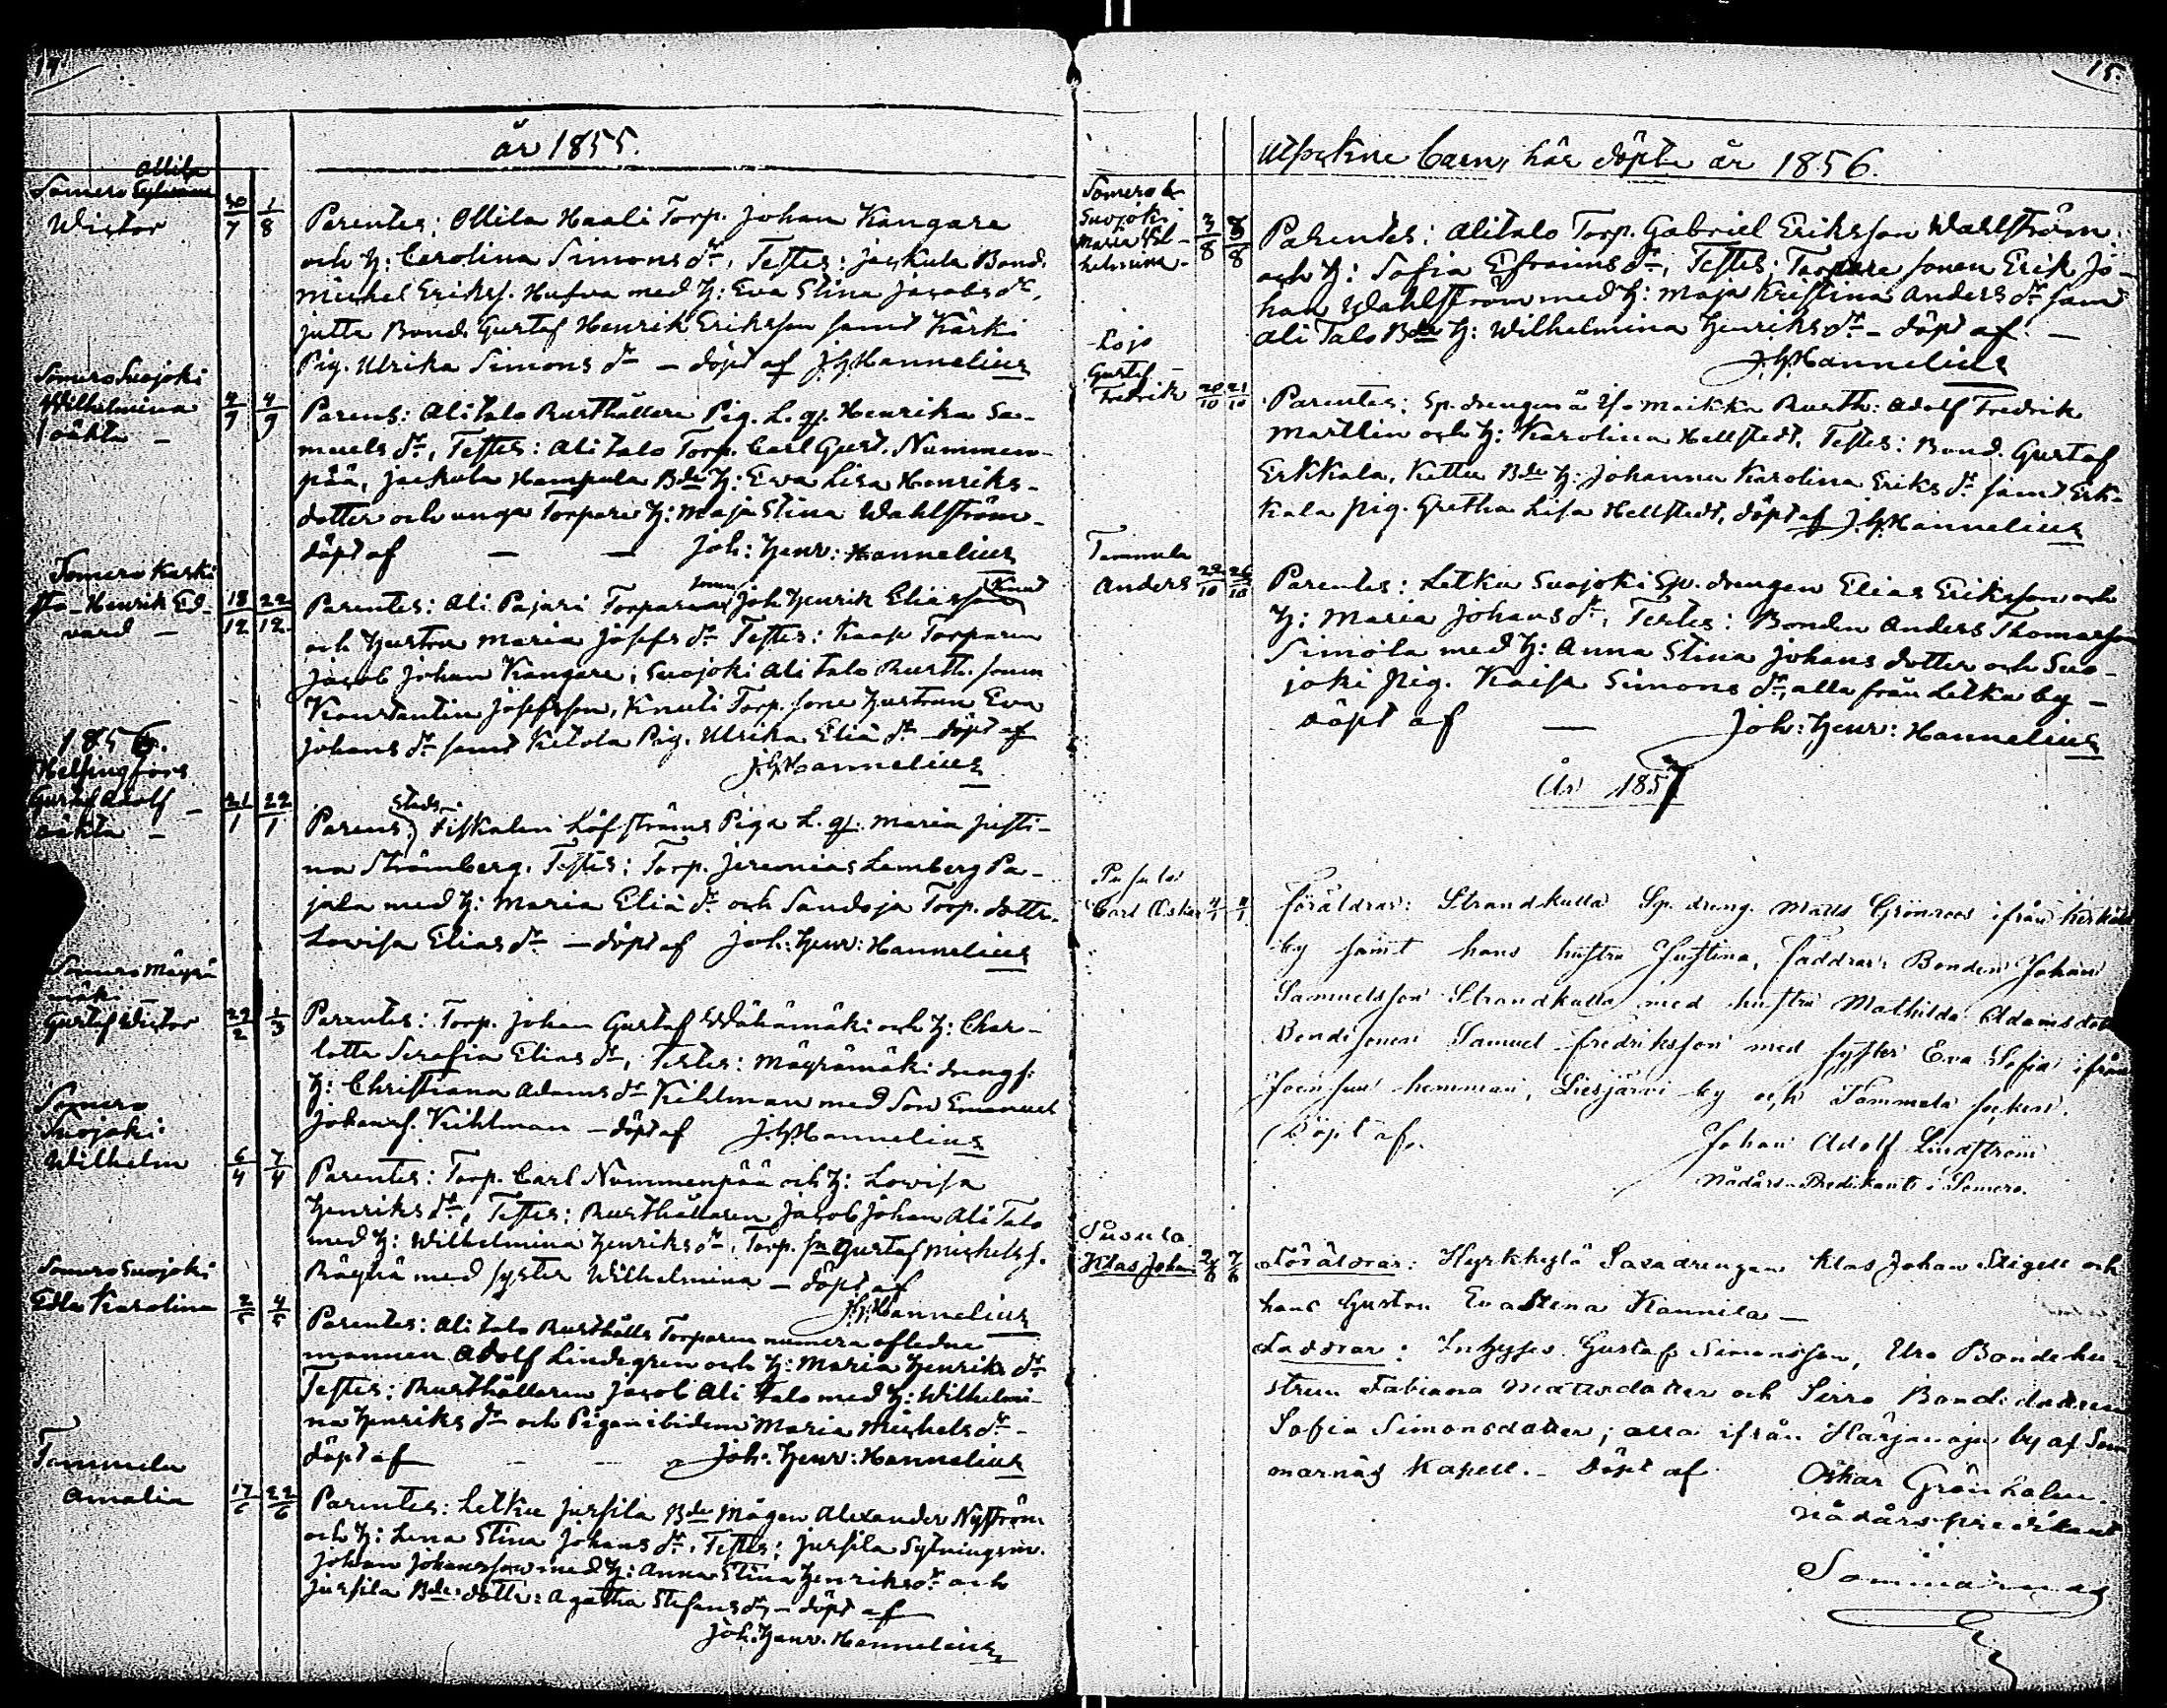 14.
år 1855.
Somero Ollila
Wictor
30/7 1/8
Parentes: Ollila Haali Torp. Johan Kangare
och H: Carolina Simons dr, Testes: Jaskula Bond.
Michel Erikss. Hufva med H: Eva Stina Jacobs dr,
Jutta Bond. Gustaf Henrik Eriksson samt Kärki
Pig. Ulrika Simons dr – döpt af J.H. Hannelius
Somero Suojoki
Wilhelmina
oäkta –
4/9 4/9
Parens: Ali Talo Rusthållare Pig. L. qf. Henrika Sa-
muels dr, Testes: Ali Talo Torp. Carl Gust. Nummen-
pää, Jaskula Hampula Bde H: Eva Lisa Henriks-
dotter och unga Torpare H: Maja Stina Wahlström –
döpt af – – Joh: Henr: Hannelius
Somero Kerki
Henrik Ed-
vard –
18/12 22/12
Parentes: Ali Pajari Torpare sonen Joh Henrik Eliasson Knut
och Hustru Maria Josefs dr Testes: Kaase Torparen
Jacob Johan Kangare, Suojoki Ali Talo Rusth. sonen
Konstantin Josefsson, Knuti Torp. sone Hustrun Eva
Johans dr samt Kitola Pig. Ulrika Eliæ dr – döpt af
J.H. Hannelius
1856.
Helsingfors
Gustaf Adolf –
oäkta –
21/1 22/1
Parens: Stads Fiskalen Löfströms Piga L. qf. Maria Justi-
na Strömberg. Testes: Torp. Jeremias Lemberg Pa-
jala med H: Maria Eliæ dr och Sandoja Torp. dottr.
Lovisa Elias dr – döpt af Joh: Henr: Hannelius
Somero Mäyrä
mäki –
Gustaf Wictor
29/2 1/3
Parentes: Torp. Johan Gustaf Wähämäki och H: Char-
lotta Serafia Elias dr, Testes: Mäyrämäki drengs.
H: Christiana Adams dr Kihlman med Son Emanuel
Johanss. Kihlman – döpt af J.H. Hannelius
Somero
Suojoki
Wilhelm
6/4 7/4
Parentes: Torp. Carl Nummenpää och H: Lovisa
Henriks dr, Testes: Rusthållaren Jacob Johan Ali Talo
med H: Wilhelmina Henriks dr, Torp. sn Gustaf Michelss.
med syster Wilhelmina – döpt af
J.H. Hannelius
Somero Suojoki
Edla Karolina
2/5 4/5
Parentes: Ali Talo Rusthålls Torparen numera afledne
mannen Adolf Lindegren och H: Maria Henriks dr
Testes: Rusthållaren Jacob Ali Talo med H: Wilhelmi-
na Henriks dr och Pigan ibidem Maria Michels dr –
döpt af – – Joh: Henr: Hannelius
Tammela
Amalia
17/6 22/6
Parentes: Letku Jussila Bde Mågen Alexander Nyström
och H: Lena Stina Johans dr, Testes: Jussila Sytningsm.
Johan Johansson med H: Anna Stina Henriks dr och
Jussila Bde dotter: Agatha Stefans dr, – döpt af
Joh: Henr. Hannelius
15.
Utsokne barn, här döpte år 1856.
Somero
Suojoki
Maria Wil-
helmina –
3/8 8/8
Parentes: Alitalo Torp. Gabriel Eriksson Wahlström
och H: Sofia Efraims dr, Testes: Torpare sonen Erik Jo-
han Wahlström med H: Maja Kristina Anders dr samt
Ali Talo Bde H: Wilhelmina Henriks dr – döpt af –
J.H. Hannelius
Lojo
Gustaf –
Fredrik
20/10 21/10
Parentes: Sp. drengen Rusth: Adolf Fredrik
Martlin och H: Karolina Hellstedt, Testes: Bond. Gustaf
Erkkala, Kettu Bde H: Johanna Karolina Eriks dr samt Erk-
kala pig. Gretha Lisa Hellstedt, döpt af J.H. Hannelius
Tammela
Anders
22/10 26/10
Parentes: Letku Suojoki Sp. drengen Elias Eriksson och
H: Maria Johans dr, Testes: Bonden Anders Thomasson
Simola med H: Anna Stina Johans dotter och Suo-
joki pig. Kaisa Simons dr, alla från Letku by –
döpt af – Joh: Henr: Hannelius
År 1857
Pusula
Carl Oskar
4/1 4/1
Föräldrar: Strandkulla Sp. dreng. Matts Grönroos ifrån
by samt hans hustru Justina, Faddrar: Bonden Johan
Samuelsson Strandkulla med hustru Mathilda Adamsdott
Bondesonen Samuel Fredriksson med syster Eva Sofia ifrån
Joensuu hemman, Liesjärvi by och Tammela socken.
Döpt af.
Johan Adolf Lindström
Nådårs-Predikant i Somero.
Pusula
Klas Johan
7/6
Föräldrar: Hyrkkylä Klas Johan Stigell och
hans Hustru Eva Stena Kannila –
Faddrar: Inhyses Gustaf Simonsson, Uro Bondehu-
strun Fabiana Mattsdotter och Sirro Bondedottren
Sofia Simonsdotter; alla ifrån Härjanoja by af Som
marnäs Kapell. – Döpt af Oskar Grönholm.
nådårspredikant
Sommarnäs